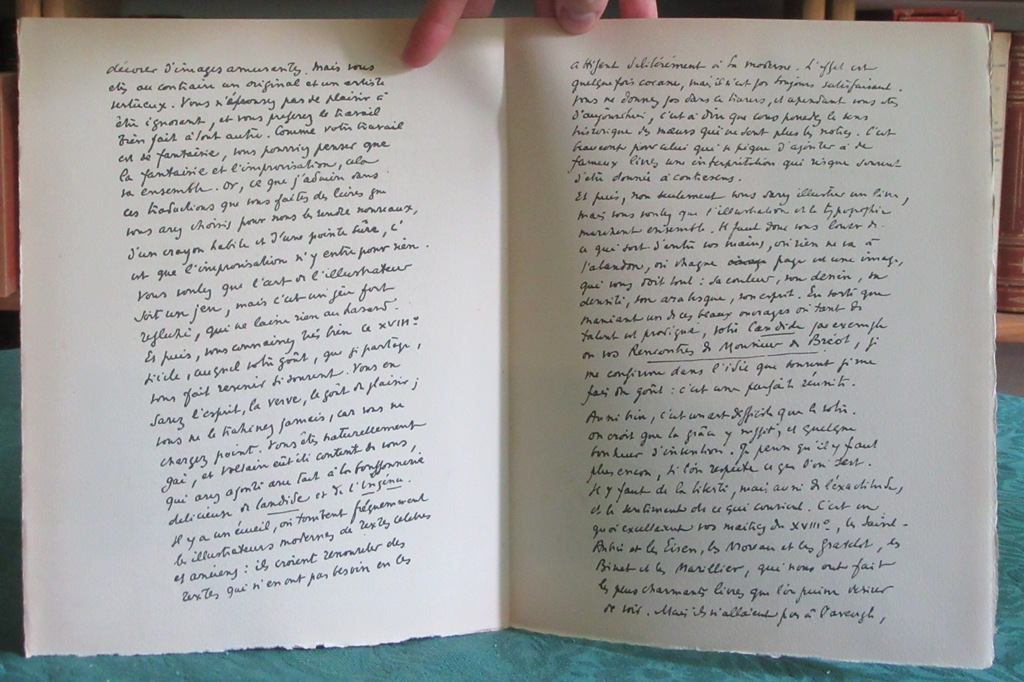 décorer d'images amusantes. Mais vous
êtes au contraire un original et un artiste
vertueux. Vous n'éprouvez pas de plaisir à
être ignorant, et vous préférez le travail
bien fait à tout autre. Comme votre travail
est de fantaisie, vous pourriez penser que
la fantaisie et l'improvisation, cela
va ensemble. Or, ce que j'admire dans
ces traductions que vous faites des livres que
vous avez choisis pour nous les rendre nouveaux,
d'un crayon habile et d'une pointe sûre, c'
est que l'improvisation n'y entre pour rien.
Vous voulez que l'art de l'illustrateur
soit un jeu, mais c'est un jeu fort
réfléchi, qui ne laisse rien au hasard.
Et puis, vous connaissez très bien ce XVIIIe
siècle, auquel votre goût, que je partage,
vous fait revenir si souvent. Vous en
savez l'esprit, la verve, le goût de plaisir ;
vous ne le trahissez jamais, car vous ne
chargez point. Vous êtes naturellement
gai, et Voltaire eût été content de vous,
qui avez ajouté au fait à la bouffonnerie
délicieuse de Candide et de l'Ingénu.
Il y a un écueil, où tombent fréquemment
les illustrateurs modernes de textes célèbres
et anciens : ils croient renouveler des
textes qui n'en ont pas besoin en les
attifant délibérément à la moderne. L'effet est
quelquefois cocasse, mais il n'est pas toujours satisfaisant.
Vous ne donnez pas dans ce travers, et cependant vous êtes
d'aujourd'hui, c'est à dire que vous possédez le sens
historique des mœurs qui ne sont plus les nôtres. C'est
beaucoup pour celui qui se pique d'ajouter à de
fameux livres une interprétation qui risque souvent
d'être donnée à contresens.
Et puis, non seulement vous savez illustrer un livre,
mais vous voulez que l'illustration et la typographie
marchent ensemble. Il faut donc vous louer de
ce qui sort d'entre vos mains, où rien ne va à
l'abandon, où chaque page est une image,
qui vous doit tout : sa couleur, son dessin, sa
densité, son arabesque, son esprit. En sorte que
maniant un de ces beaux ouvrages où tant de
talent est prodigué, votre Candide par exemple
ou vos Rencontres de Monsieur de Bréot, je
me confirme dans l'idée que souvent je me
fais du goût : c'est une parfaite réussite.
Aussi bien, c'est un art difficile que le vôtre.
On croit que la grâce y suffit, et quelque
bonheur d'invention. Je pense qu'il y faut
plus encore, si l'on respecte ce que l'on sert.
Il y faut de la liberté, mais aussi de l'exactitude,
et le sentiment de ce qui convient. C'est en
quoi excellaient vos maîtres du XVIIIe, les Saint-
Aubin et les Eisen, les Moreau et les Gravelot, les
Binet et les Marillier, qui nous ont fait
les plus charmants livres que l'on puisse désirer
de voir. Mais ils n'allaient pas à l'aveugle,